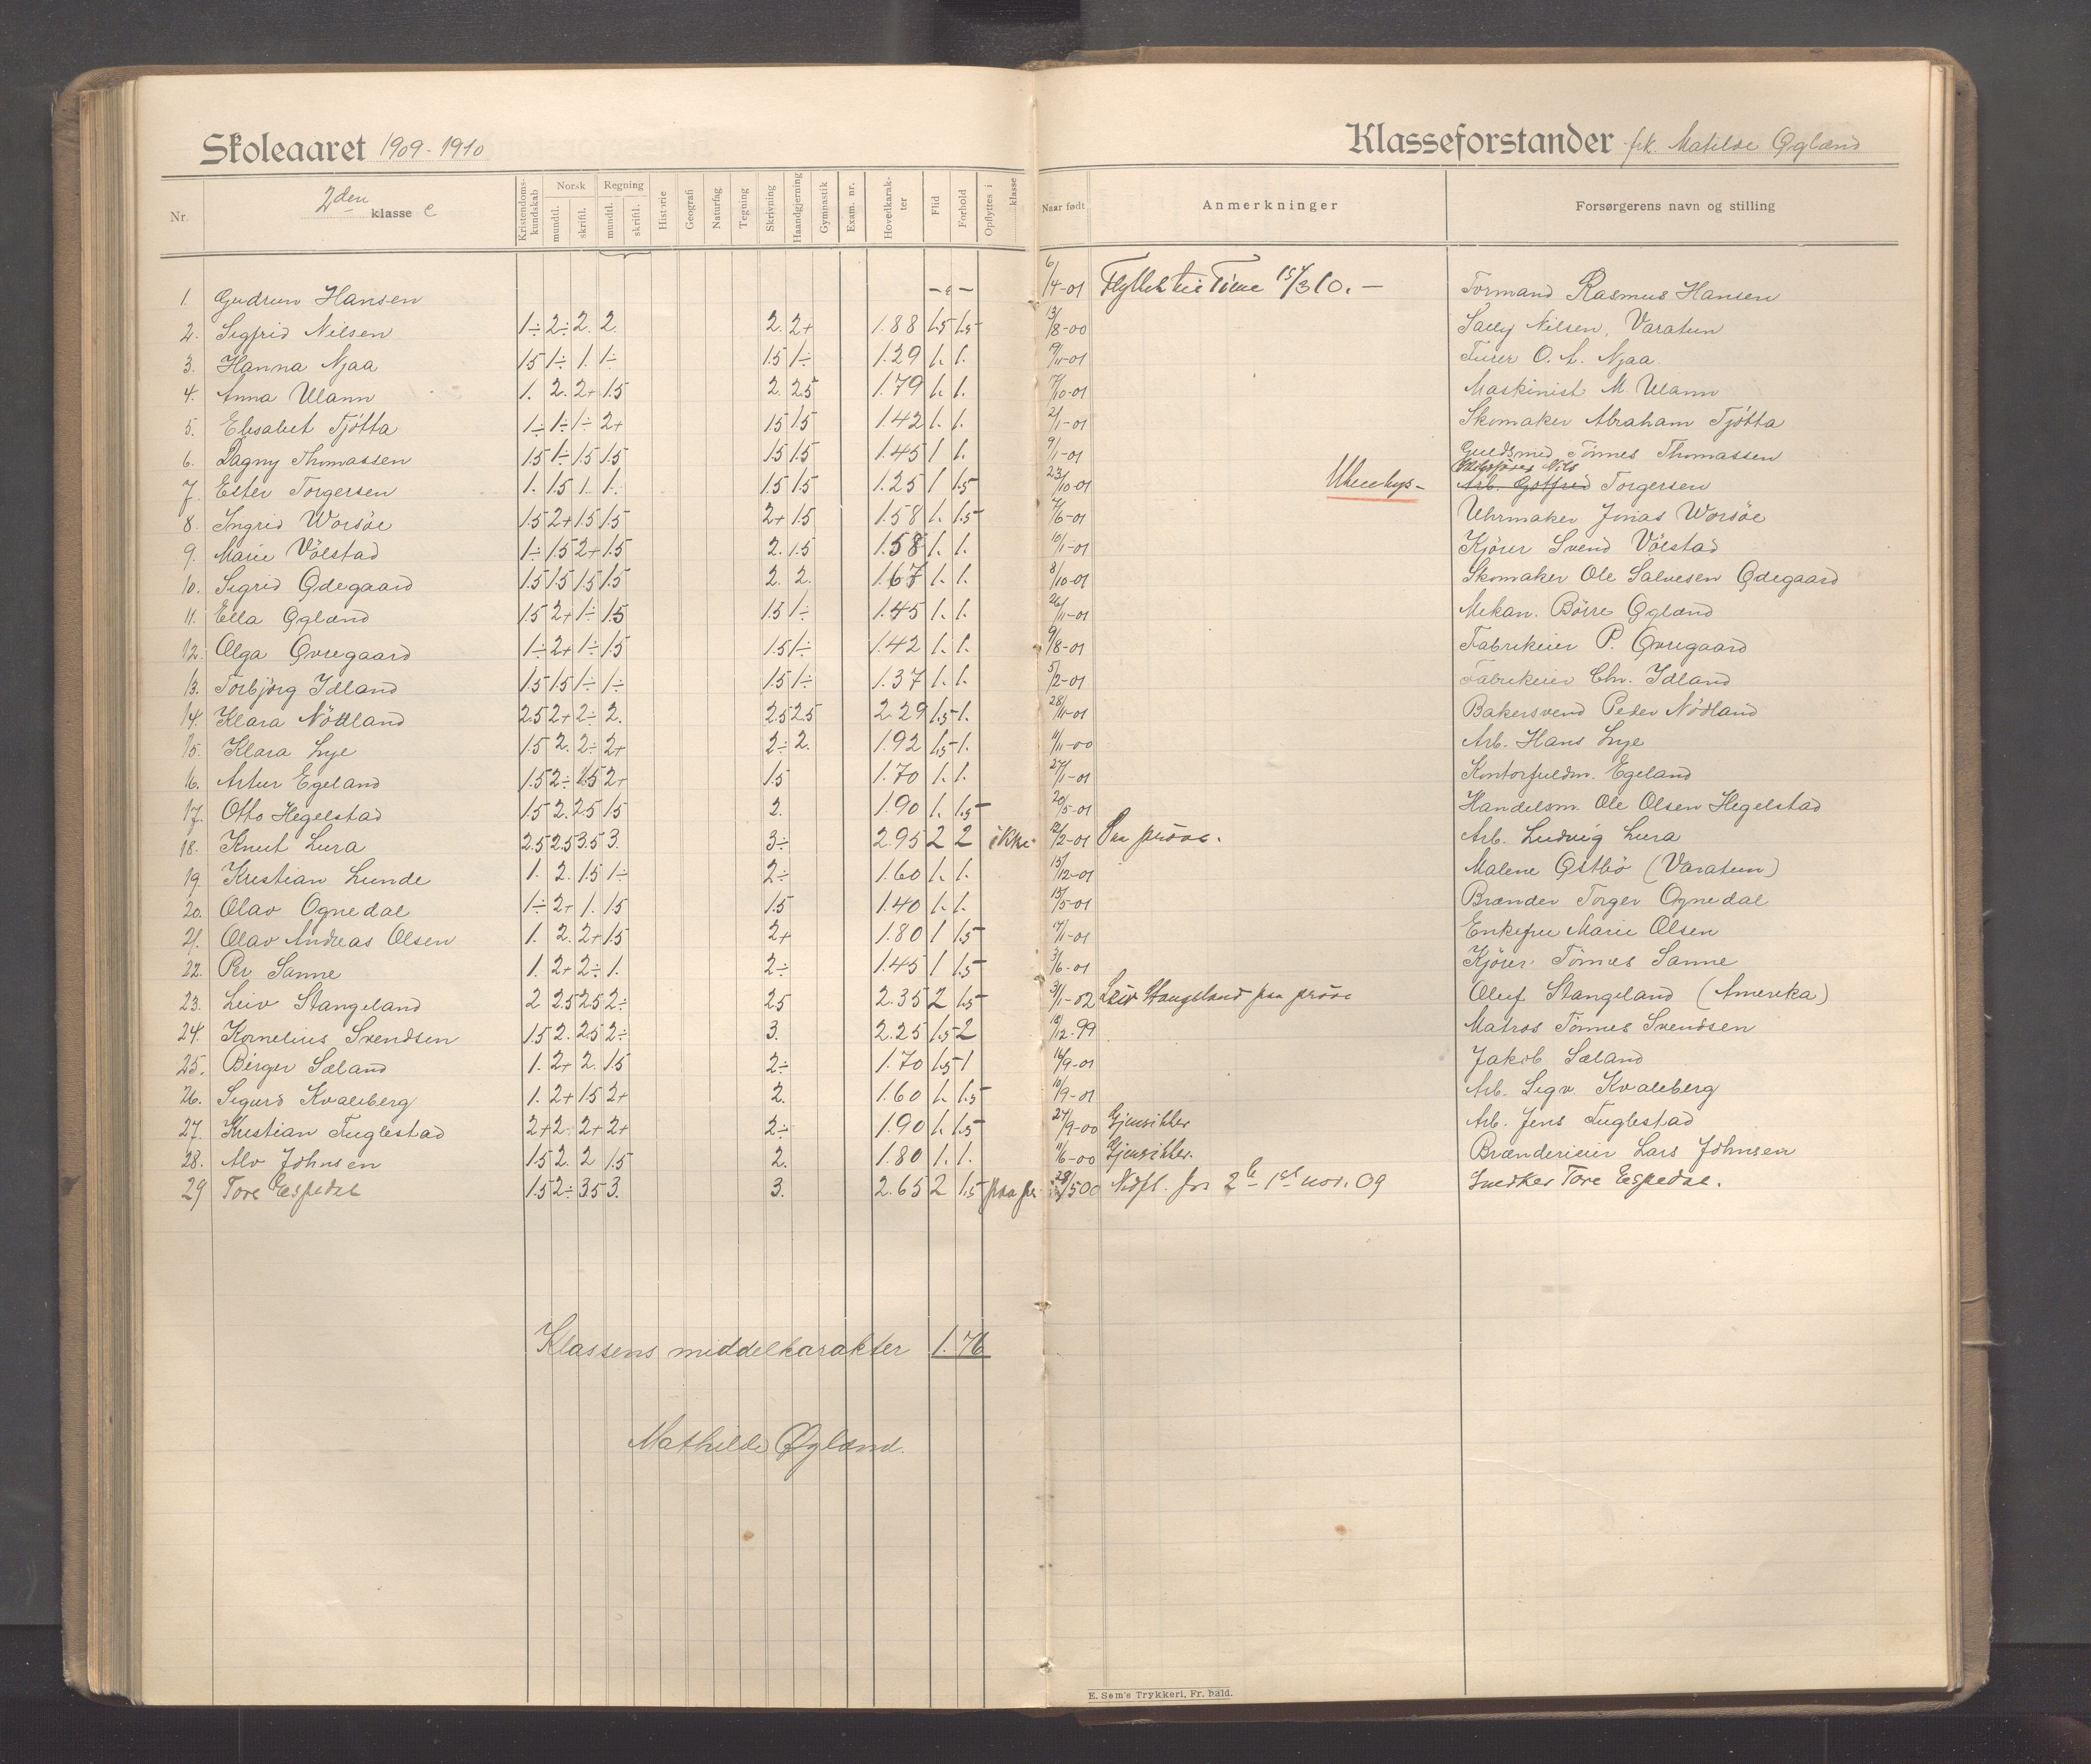 Skoleaaret 1909-1910
Klasseforstander frk. Matilde Øgland
Nr. 2den klasse c Kristendomskundskab Norsk mundtl. skriftl. Regning mundtl. skriftl. Historie Geografi Naturfag Tegning Skrivning Haandgjerning Gymnastik Exam. nr. Hovedkarakter Flid Forhold Opflyttes i klasse Naar født Anmerkninger Forsørgerens navn og stilling
1. Gudrun Hansen 6/4-01 Flyttet til Time 15/3 10. Formand Rasmus Hansen
2. Sigfrid Nilsen 1÷ 2÷ 2. 2. 2. 2+ 1.88 1.5 1.5 13/8-00 Nilsen, Varatun
3. Hanna Njaa 1.5 1÷ 1. 1÷ 1.5 1÷ 1.29 1. 1. 19/11-01 O. A. Njaa
4. Anna Ulann 1. 2. 2+ 1.5 2. 2.5 1.79 1. 1. 17/10-01 Maskinist M. Ulann
5. Elisabet Tjøtta 1÷ 1÷ 1÷ 2+ 1.5 1.5 1.42 1. 1. 2/1-01 Skomaker Abraham Tjøtta
6. Dagny Thomassen 1.5 1÷ 1.5 1.5 1.5 1.5 1.45 1 1. 9/1-01 Guldsmed Tönnes Thomassen
7. Ester Torgersen 1. 1.5 1. 1. 1.5 1.5 1.25 1 1.5 23/10-01 Nils Arb. Gotfred Torgersen
8. Ingrid Worsöe 1.5 2+ 1.5 1.5 2+ 1.5 1.58 1. 1.5 7/6-01 Uhrmaker Jonas Worsöe
9. Marie Völstad 1÷ 1.5 2+ 1.5 2. 1.5 1.58 1. 1. 10/1-01 Kjörer Svend Völstad
10. Sigrid Ødegaard 1.5 1.5 1.5 1.5 2. 2. 1.67 1. 1. 8/10-01 Skomaker Ole Salvesen Ødegaard
11. Ella Øgland 1.5 2+ 1÷ 1.5 1.5 1÷ 1.45 1. 1. 26/11-01 Mekan. Börre Øgland
12. Olga Øvregaard 1÷ 2+ 1÷ 1.5 1.5 1÷ 1.42 1. 1. 9/8-01 Fabrikeier P. Øvregaard
13. Torbjörg Idland 1.5 1.5 1÷ 1÷ 1.5 1÷ 1.37 1. 1. 5/2-01 Fabrikeier Chr. Idland
14. Klara Nödland 2.5 2+ 2÷ 2. 2.5 2.5 2.29 1.5 1. 28/11-01 Bakersvend Peder Nödland
15. Klara Lye 1.5 2. 2÷ 2+ 2÷ 2. 1.92 1.5 1. 11/11-00 Arb. Hans Lye
16. Artur Egeland 1.5 2÷ 1.5 2+ 1.5 1.70 1. 1. 27/1-01 Kontorfuldm. Egeland
17. Otto Hegelstad 1.5 2. 2.5 1.5 2. 1.90 1. 1.5 20/5-01 Handelsm. Ole Olsen Hegelstad
18. Knut Lura 2.5 2.5 3.5 3. 3÷ 2.95 2 2 ikke 12/2-01 Paa pröve. Arb. Ludvig Lura
19. Kristian Lunde 1. 2. 1.5 1÷ 2÷ 1.60 1. 1. 15/12-01 Malene Østbö (Varatun)
20. Olav Ognedal 1÷ 2+ 1. 1.5 1.5 1.40 1. 1. 15/5-01 Brænder Torger Ognedal
21. Olav Andreas Olsen 1. 2. 2+ 1.5 2+ 1.80 1 1.5 17/1-01 Enkefru Marie Olsen
22. Per Sanne 1. 2+ 2÷ 1. 2÷ 1.45 1 1.5 3/6-01 Kjörer Tönnes Sanne
23. Leiv Stangeland 2 2.5 2.5 2÷ 2.5 2.35 2 1.5 3/1-02 Leiv Stangeland paa pröve Oluf Stangeland (Amerika)
24. Kornelius Svendsen 1.5 2. 2.5 2÷ 3. 2.25 1.5 2 18/12-99 Matros Tönnes Svendsen
25. Birger Sæland 1. 2+ 2. 1.5 2÷ 1.70 1.5 1 16/9-01 Jakob Sæland
26. Sigurd Kvaleberg 1. 2+ 1.5 2+ 2. 1.60 1. 1.5 10/9-01 Arb. Sigv. Kvaleberg
27. Kristian Fuglestad 2+ 2. 2+ 2+ 2÷ 1.90 1. 1.5 27/9-00 Gjensitter Arb. Jens Fuglestad
28. Alv Johnsen 1.5 2. 2 1.5 2. 1.80 1. 1. 11/6-00 Gjensitter. Brænderieier Lars Johnsen
29 Tore Espedal 1.5 2÷ 3.5 3. 3. 2.65 2 1.5 paa pr. 28/5 00 Nedfl. fra 1st nov. 09 Snedker Tore Espedal.
Klassens middelkarakter 1.76
Mathilde Øgland.
E. Søm's Trykkeri, Fr. hald.